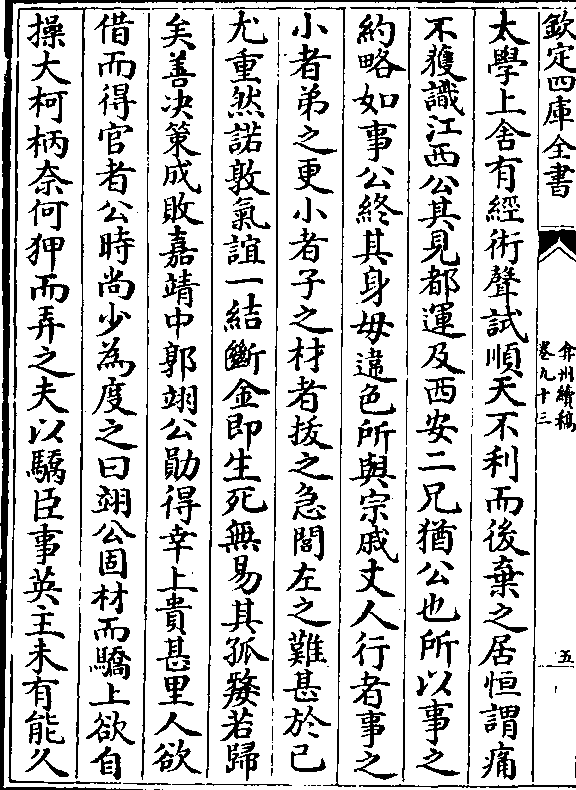 欽定四庫全書
弇州續稿
卷九十三
五
太學上舍有經術聲試順天不利而後棄之居恒謂痛
不獲識江西公其見都運及西安二兄猶公也所以事之
約略如事公終其身毋違色所與宗戚丈人行者事之
小者弟之更小者子之材者㧞之急閭左之難甚於己
尤重然諾敦氣誼一結斷金即生死無易其孤嫠若歸
矣善决策成敗嘉靖中郭翊公勛得幸上貴甚里人欲
借而得官者公時尚少為度之曰翊公固材而驕上欲自
操大柯柄奈何狎而弄之夫以驕臣事英主未有能久